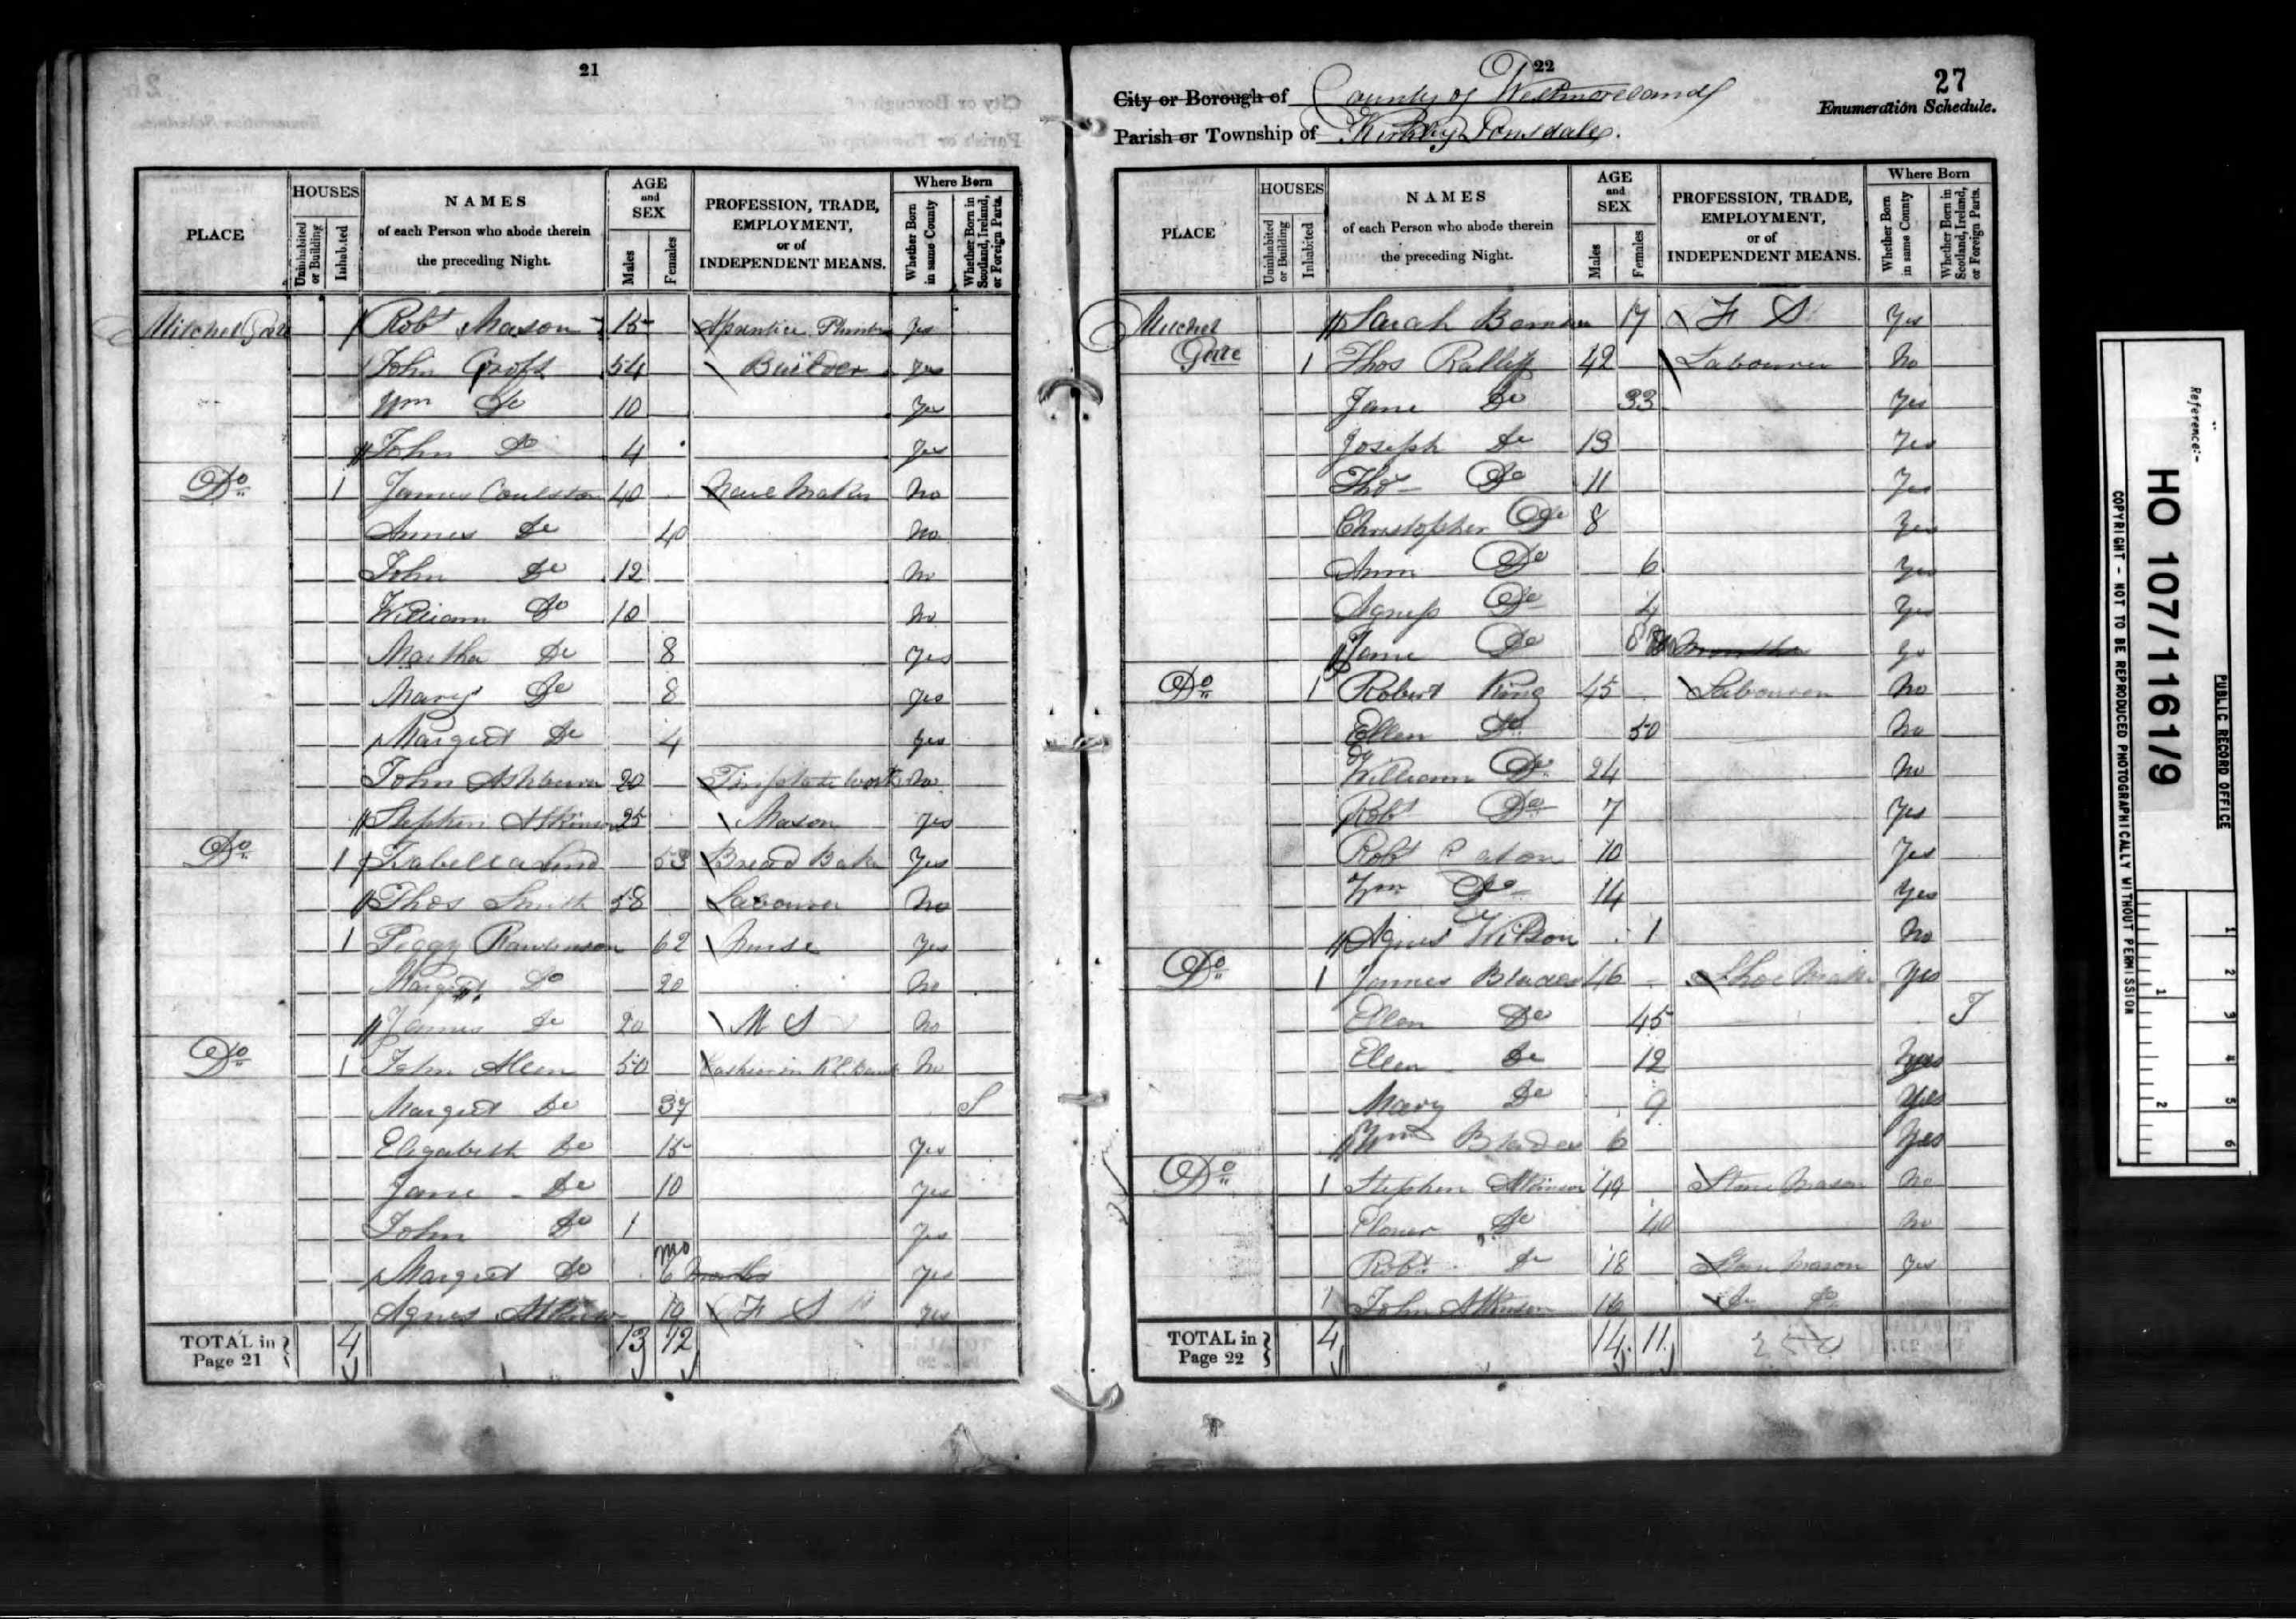 21
PLACE
HOUSES
Uninhabited or Building
Inhabited
NAMES
of each Person who abode therein
the preceding Night.
AGE
and
SEX
Males
Females
PROFESSION, TRADE,
EMPLOYMENT,
or of
INDEPENDENT MEANS.
Where Born
Whether Born in same County
Whether Born in Scotland, Ireland, or Foreign Parts.
Mitchel Gate Robt Mason 15 Aprentice Yes
John Croft 54 Builder Yes
Wm Do 10 Yes
John Do 4 Yes
Do 1 James Coulston 40 Maker No
Do 40 No
John Do 12 No
William Do 10 No
Martha Do 8 Yes
Mary Do 8 Yes
Margret Do 4 Yes
John 20 Tinplate Work No
Stephen Atkinson 25 Mason Yes
Do 1 Isabella 53 Bread Baker Yes
Thos Smith 58 Labourer No
1 Peggy Rawlinson 62 Nurse Yes
Margret Do 20 No
James Do 20 M S No
Do 1 John 50 Cashier in K L Bank No
Margret Do 37 S
Elizabeth Do 15 Yes
Jane Do 10 Yes
John Do 1 Yes
Margret Do 6 mo months Yes
Agnes Atkinson 19 F S Yes
TOTAL in Page 21 4 13 12
22
27
City or Borough of County of Westmoreland
Enumeration Schedule.
Parish or Township of Kirkby Lonsdale.
PLACE
HOUSES
Uninhabited or Building
Inhabited
NAMES
of each Person who abode therein
the preceding Night.
AGE
and
SEX
Males
Females
PROFESSION, TRADE,
EMPLOYMENT,
or of
INDEPENDENT MEANS.
Where Born
Whether Born in same County
Whether Born in Scotland, Ireland, or Foreign Parts.
Mitchel Sarah 17 F S Yes
Gate 1 Thos 42 Labourer No
Jane Do 33 Yes
Joseph Do 13 Yes
Tho Do 11 Yes
Christopher Do 8 Yes
Ann Do 6 Yes
Agness Do 4 Yes
Jane Do 8 months Yes
Do 1 Robert King 45 Labourer No
Ellen Do 50 No
William Do 24 No
Robt Do 7 Yes
Robt 10 Yes
Wm Do 14 Yes
Agnes Wilson 1 No
Do 1 James Blades 46 Shoe Maker Yes
Ellen Do 45 I
Ellen Do 12 Yes
Mary Do 9 Yes
Wm Blades 6 Yes
Do 1 Stephen Atkinson 49 Stone Mason No
Do 40 No
Robt Do 18 Stone Mason Yes
1 John Atkinson 16 Do Do
TOTAL in Page 22 4 14 11
Reference:-
HO 107/1161/9
PUBLIC RECORD OFFICE
COPYRIGHT - NOT TO BE REPRODUCED PHOTOGRAPHICALLY WITHOUT PERMISSION
1 2 3 4 5 6
1 2